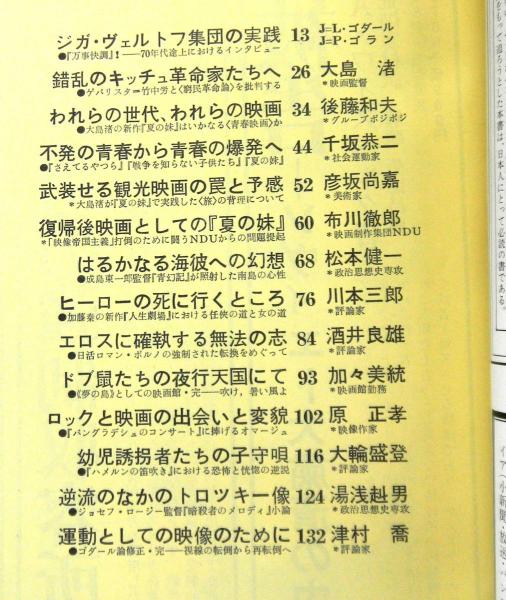 ジガ・ヴェルトフ集団の実践 13 J=L・ゴダール
●『万事快調』!――70年代途上におけるインタビュー J=P・ゴラン
錯乱のキッチュ革命家たちへ 26 大島 渚
●ゲバリスター竹中労と〈窮民革命論〉を批判する *映画監督
われらの世代、われらの映画 34 後藤和夫
●大島渚の新作『夏の妹』はいかなる〈青春映画〉か *グループポジポジ
不発の青春から青春の爆発へ 44 千坂恭二
●『さえてるやつら』『戦争を知らない子供たち』『夏の妹』 *社会運動家
武装せる観光映画の罠と予感 52 彦坂尚嘉
*大島渚が『夏の妹』で実践した〈旅〉の背理について *美術家
復帰後映画としての『夏の妹』 60 布川徹郎
*「映像帝国主義」打倒のために闘うNDUからの問題提起 *映画制作集団NDU
はるかなる海彼への幻想 68 松本健一
●成島東一郎監督『青幻記』が照射した南島の心性 *政治思想史専攻
ヒーローの死に行くところ 76 川本三郎
●加藤泰の新作『人生劇場』における任侠の道と女の道 *評論家
エロスに確執する無法の志 84 酒井良雄
●日活ロマン・ポルノの強制された転換をめぐって *評論家
ドブ鼠たちの夜行天国にて 93 加々美統
●《夢の島》としての映画館・完――吹け,暑い風よ *映画館勤務
ロックと映画の出会いと変貌 102 原 正孝
●『バングラデシュのコンサート』に捧げるオマージュ *映像作家
幼児誘拐者たちの子守唄 116 大輪盛登
●『ハメルンの笛吹き』における恐怖と恍惚の逆説 *評論家
逆流のなかのトロツキー像 124 湯浅赳男
●ジョセフ・ロージー監督『暗殺者のメロディ』小論 *政治思想史専攻
運動としての映像のために 132 津村 喬
●ゴダール論修正・完――視線の転倒から再転倒へ *評論家
をもって迫ろうとした本書は、日本人にとって必読の書である。